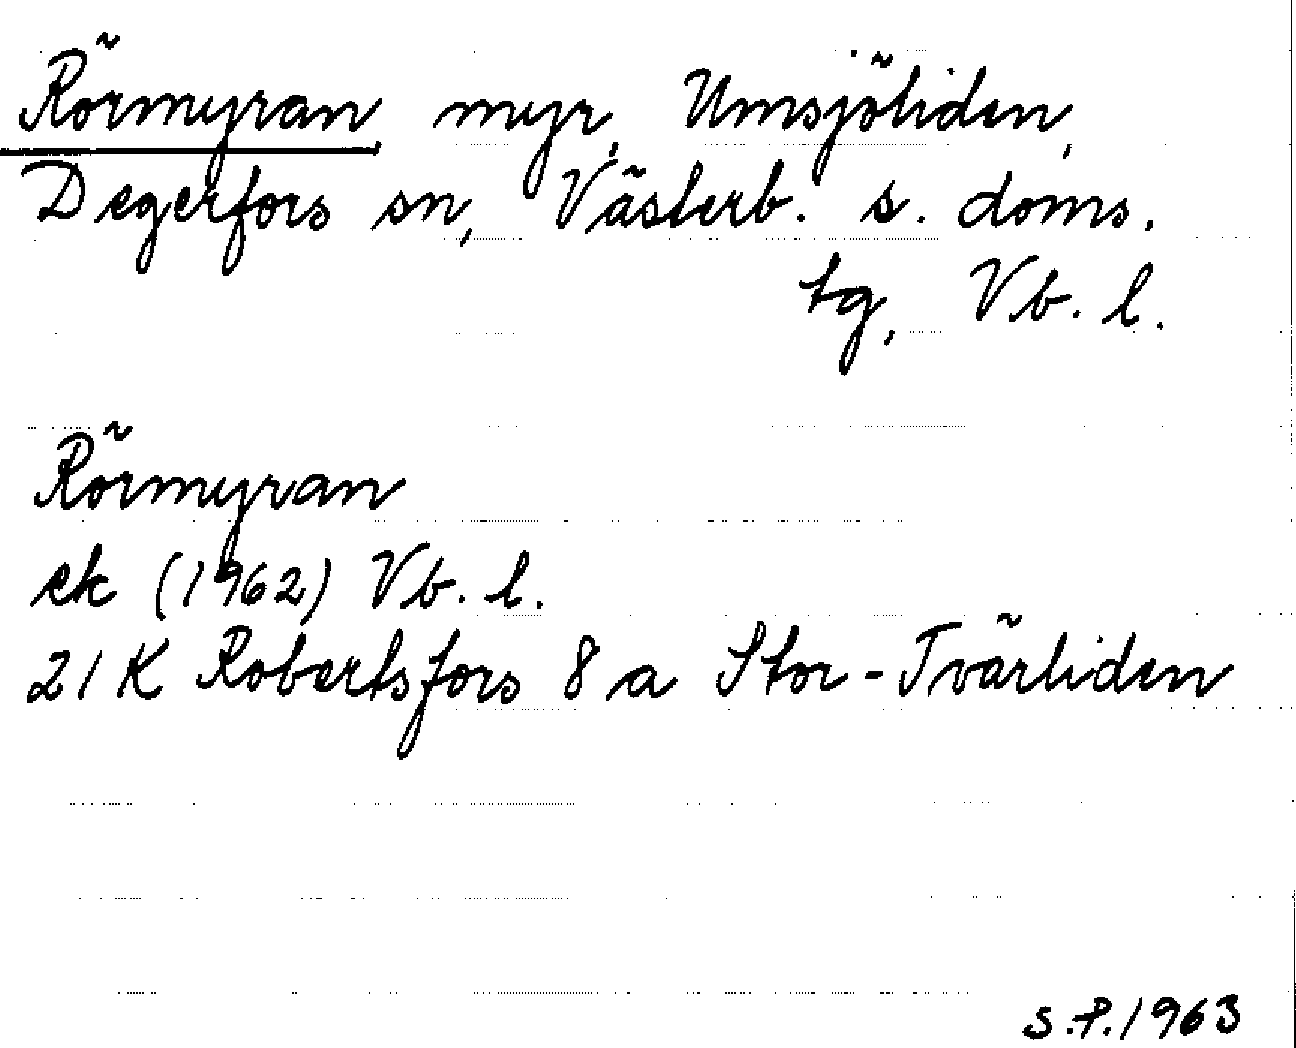 Rörmyran myr, Umsjöliden,
Degerfors sn, Västerb. s. doms.
tg, Vb. l.
Rörmyran
ek (1962) Vb. l.
21K Robertsfors 8 a Stor-Tvärliden
S.P. 1963